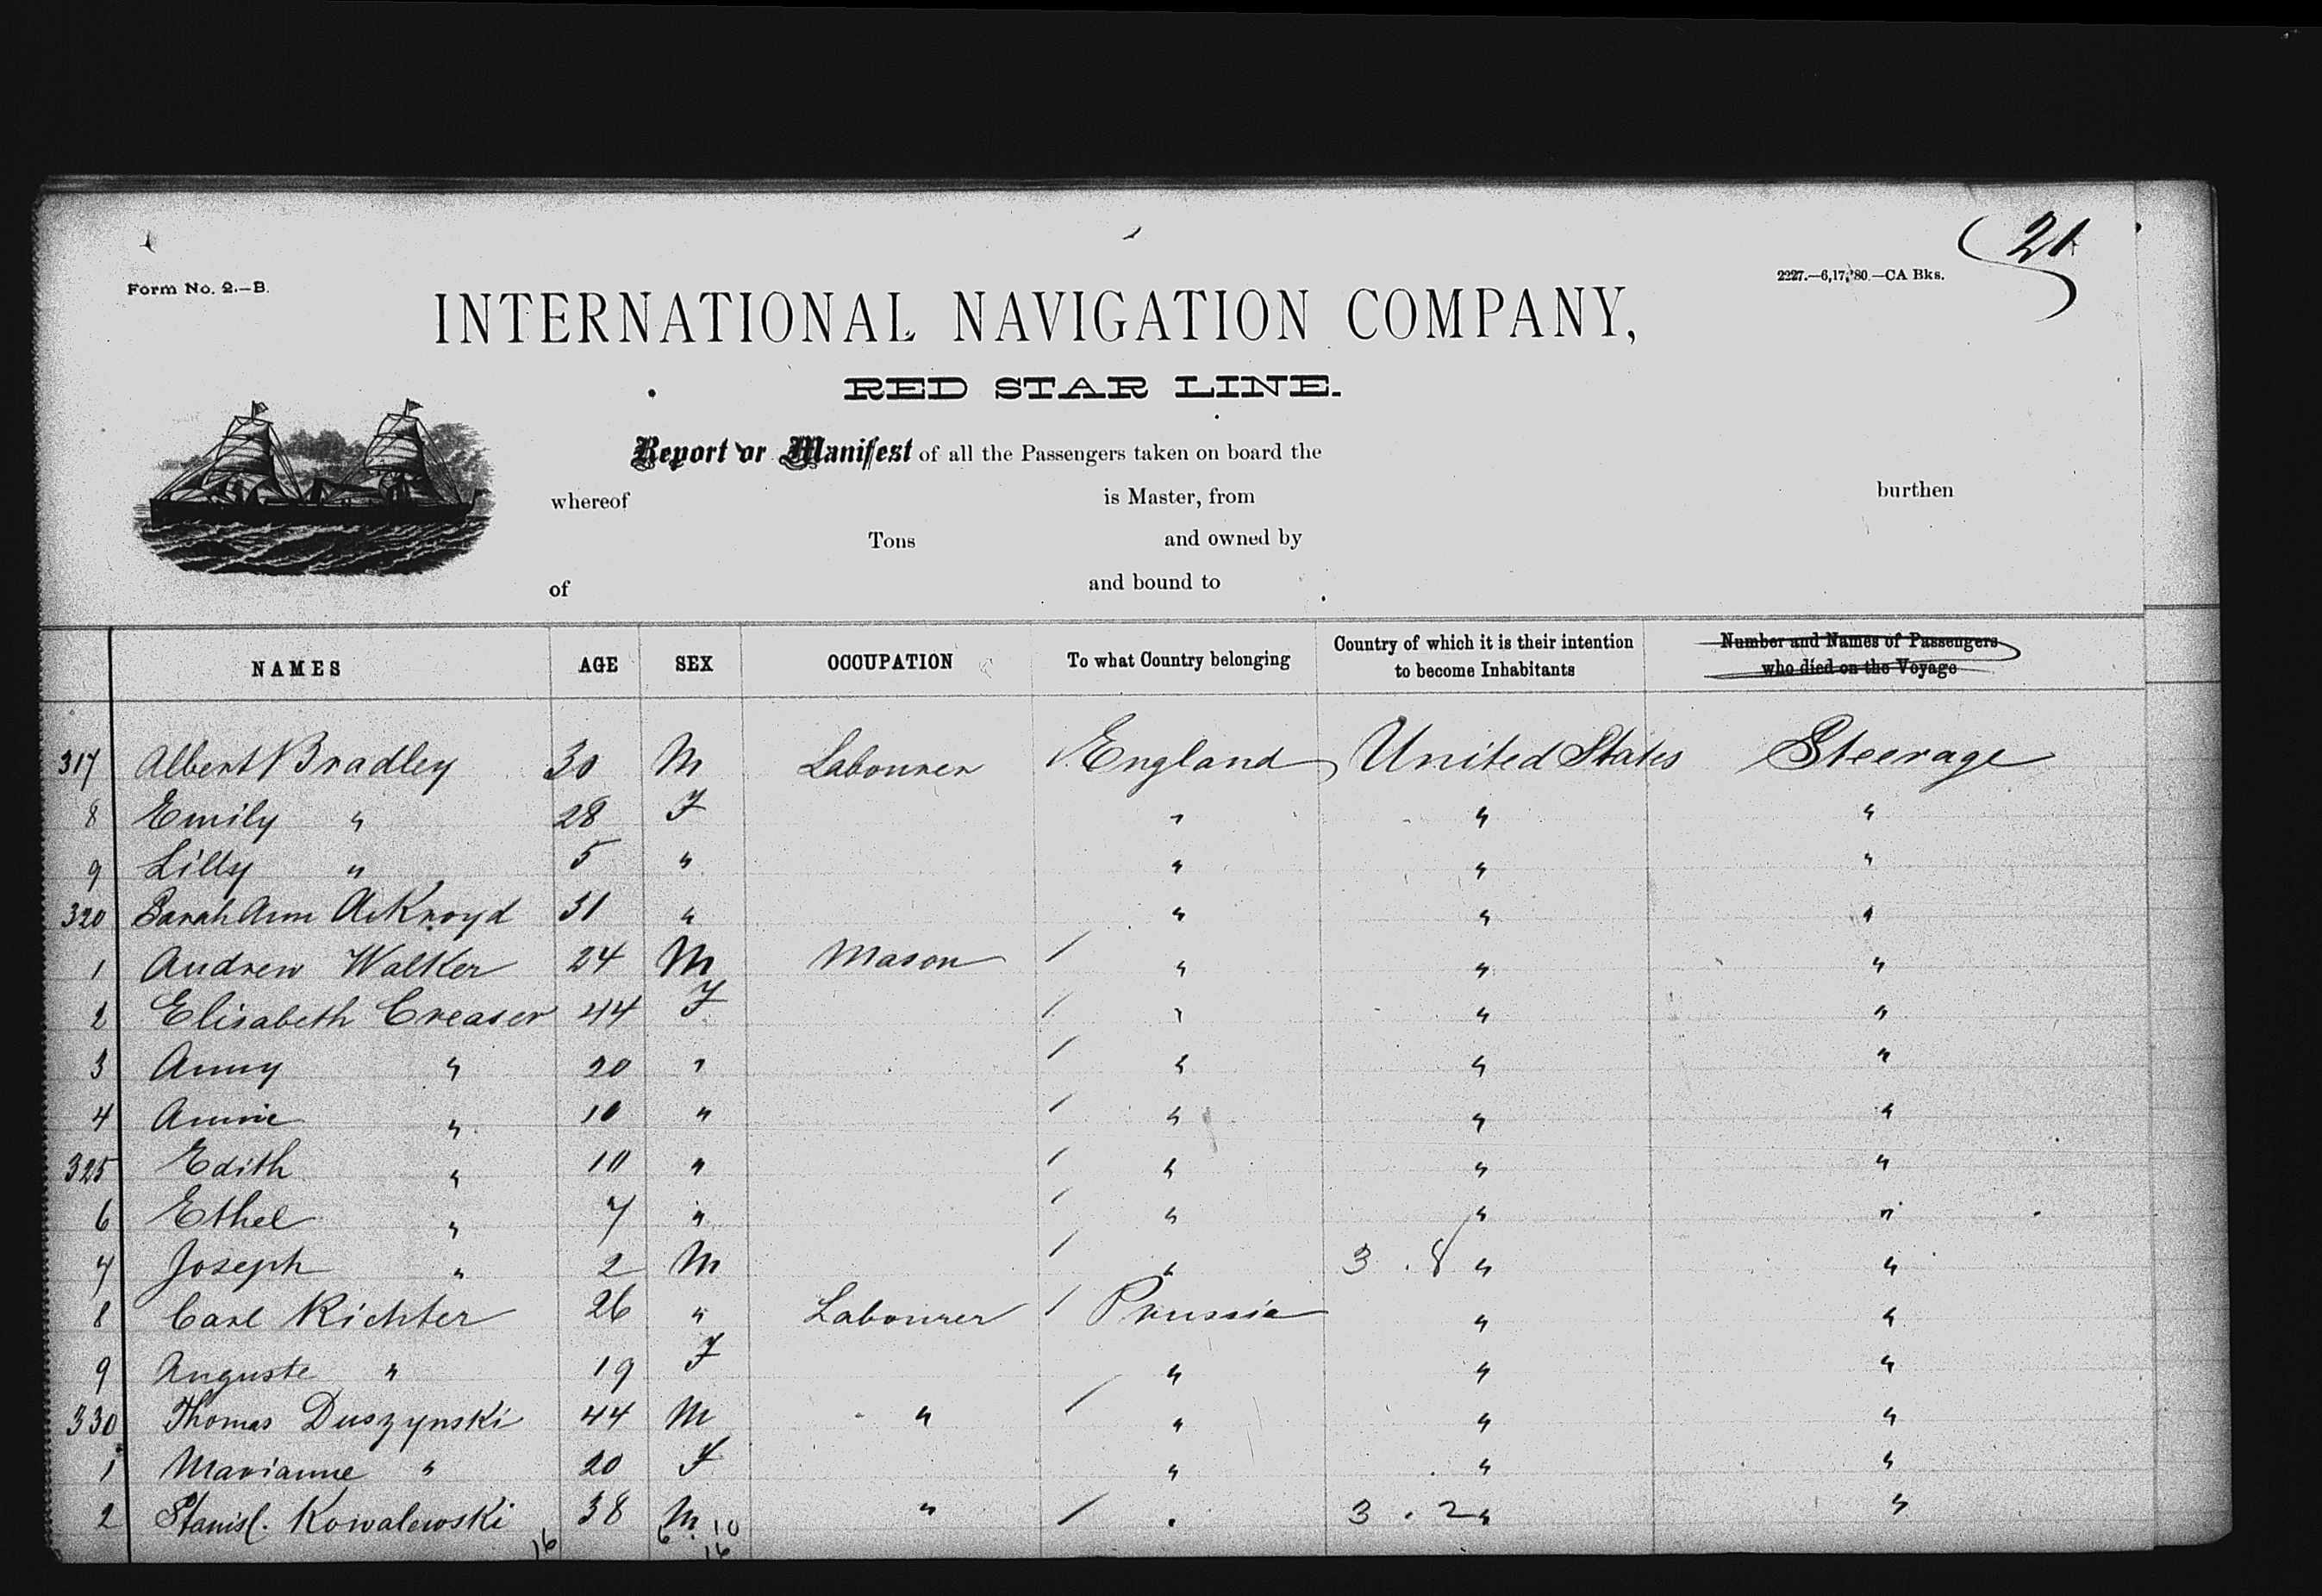 21
Form No. 2.—B.
2227.—6,17,'80.—CA Bks.
INTERNATIONAL NAVIGATION COMPANY,
RED STAR LINE.
Report or Manifest of all the Passengers taken on board the
whereof is Master, from burthen
Tons and owned by
of and bound to
NAMES AGE SEX OCCUPATION To what Country belonging Country of which it is their intention to become Inhabitants Number and Names of Passengers who died on the Voyage
317 Albert Bradley 30 M Labourer / England United States Steerage
8 Emily " 28 F " " "
9 Lilly " 5 " " " "
320 Sarah Ann Ackroyd 31 " " " "
1 Andrew Walker 24 M Mason / " " "
2 Elisabeth Creaser 44 F / " " "
3 Anny " 20 " / " " "
4 Annie " 10 " / " " "
325 Edith " 10 " / " " "
6 Ethel " 7 " / " " "
7 Joseph " 2 M / " 3 . 8 " "
8 Carl Richter 26 " Labourer / Prussia " "
9 Auguste " 19 F " " "
330 Thomas Duszynski 44 M " / " " "
1 Marianne " 20 F " " "
2 Stanisl. Kowalewski 38 M " / " 3 . 2 " "
16 6 . 10
16